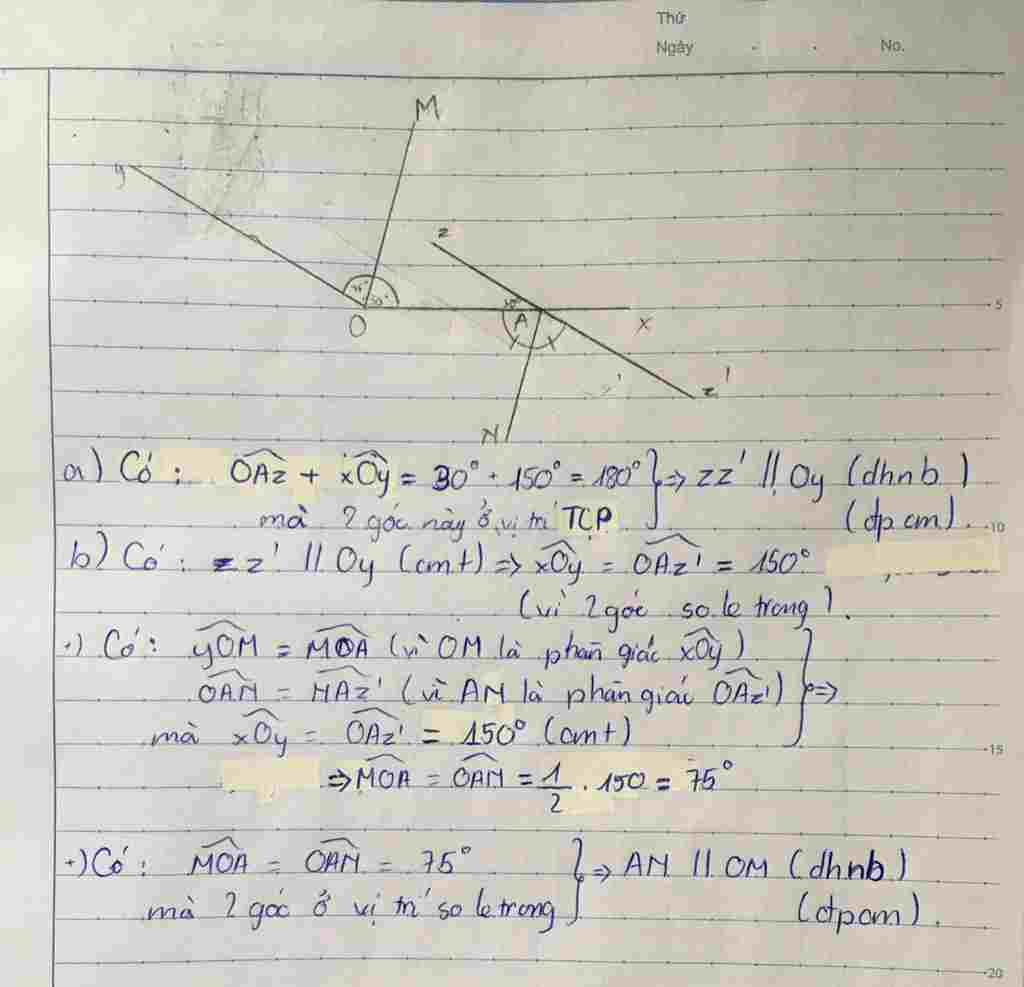 Thứ
Ngày . . No.
M
y
z
75° 30°
30°
O A x
5
z'
z'
N
a) Có: OAz + xOy = 30° + 150° = 180° } => zz' // Oy (dhnb)
mà 2 góc này ở vị trí TCP (đpcm). 10
b) Có: zz' // Oy (cmt) => xOy = OAz' = 150°
(vì 2 góc so le trong).
+) Có: yOM = MOA (vì OM là phân giác xOy)
OAN = NAz' (vì AN là phân giác OAz') } =>
mà xOy = OAz' = 150° (cmt)
15
=> MOA = OAN = 1/2 . 150 = 75°
+) Có: MOA = OAN = 75° } => AN // OM (dhnb)
mà 2 góc ở vị trí so le trong (đpcm).
20